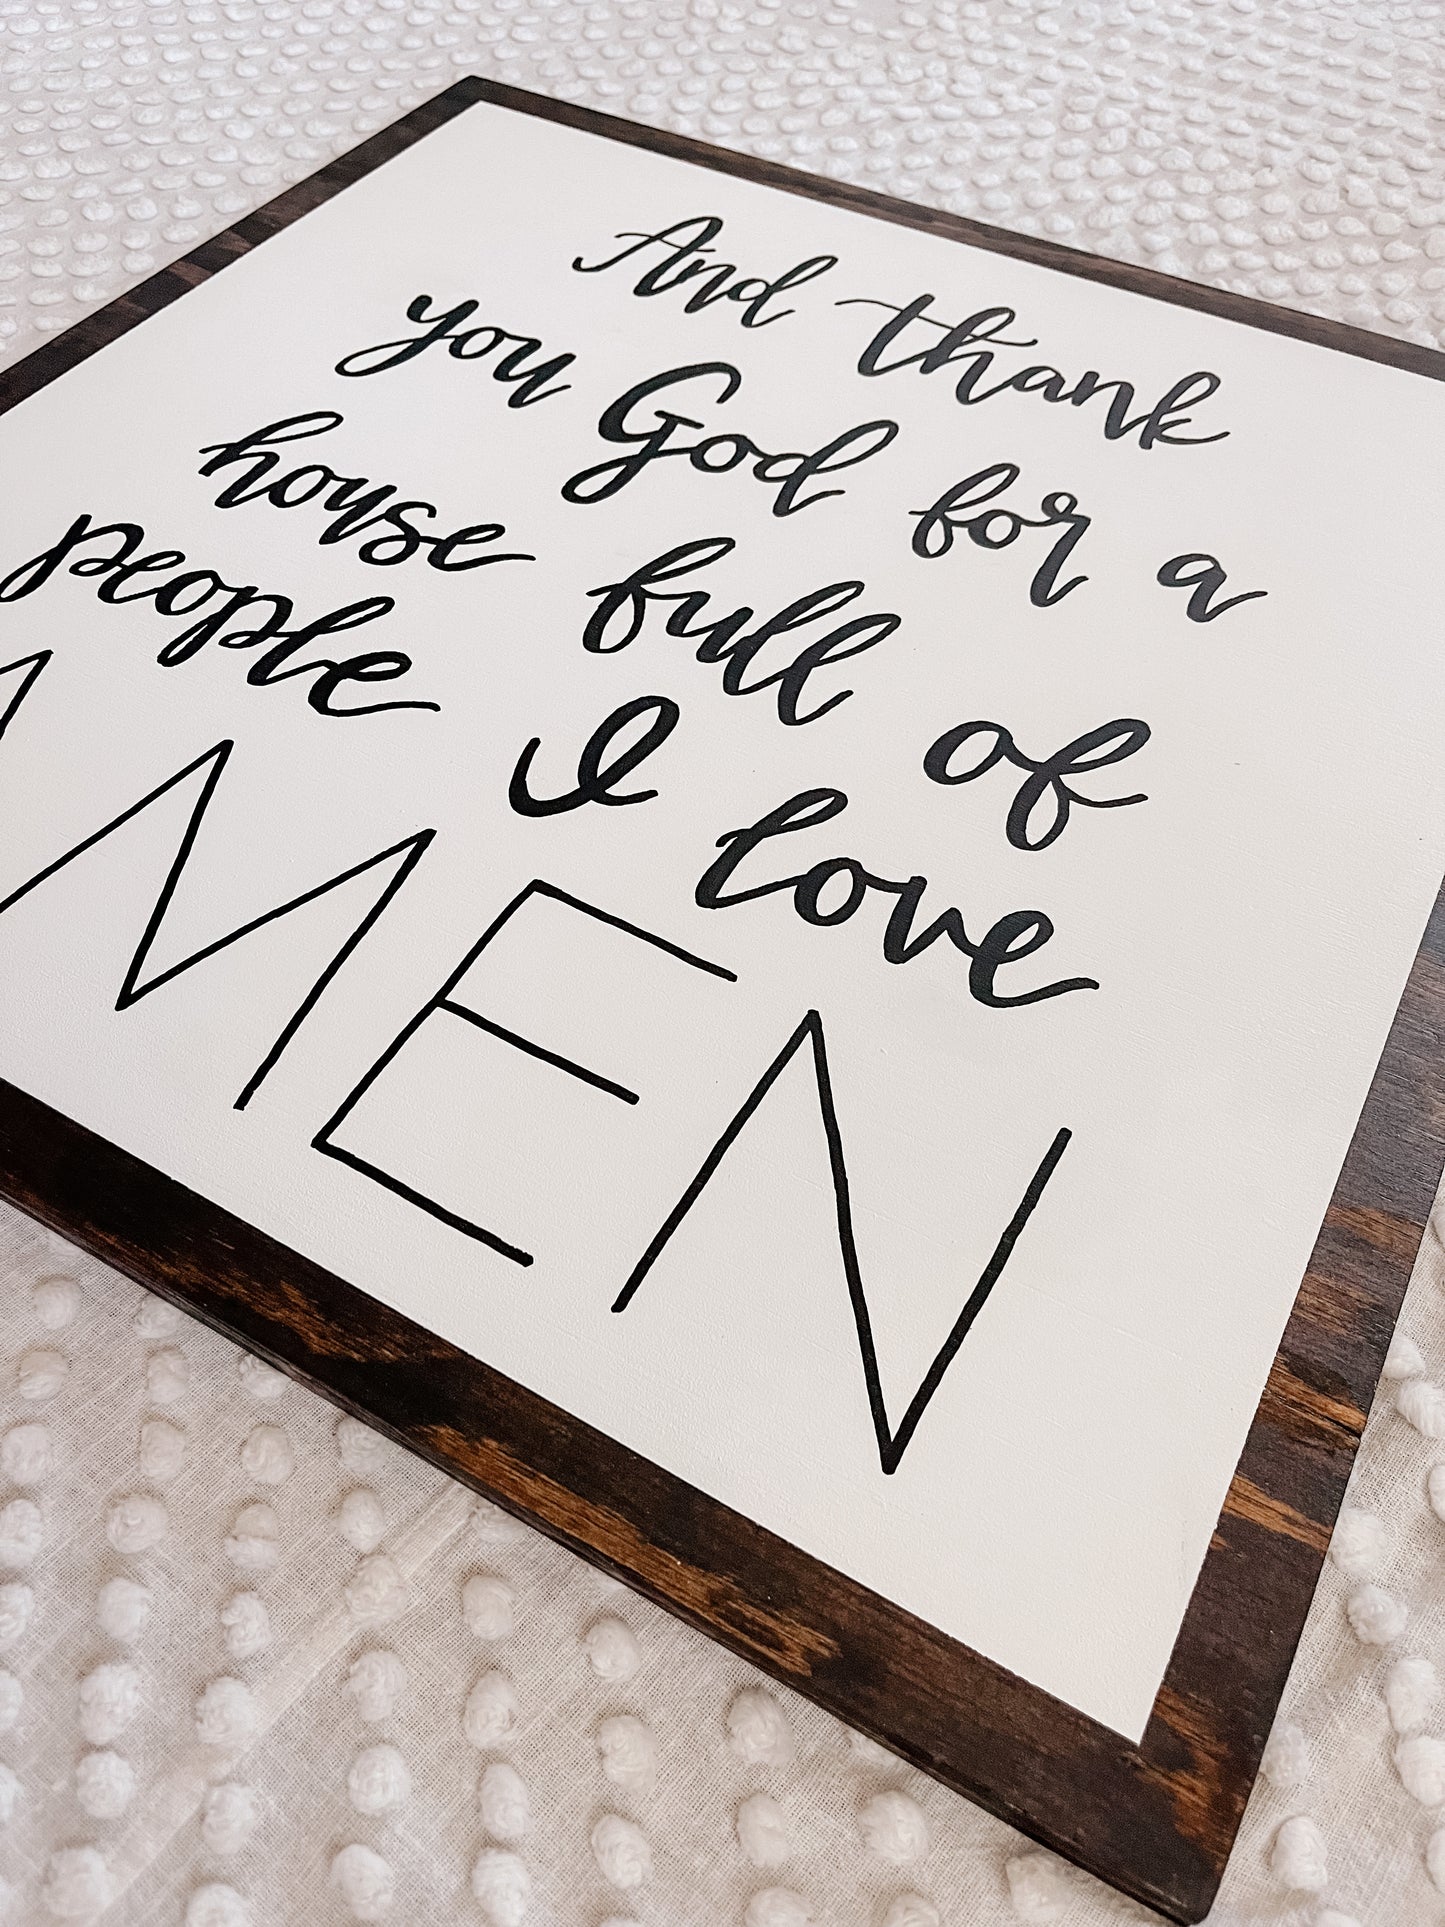 And thank
you God for a
house full of
people I love
AMEN